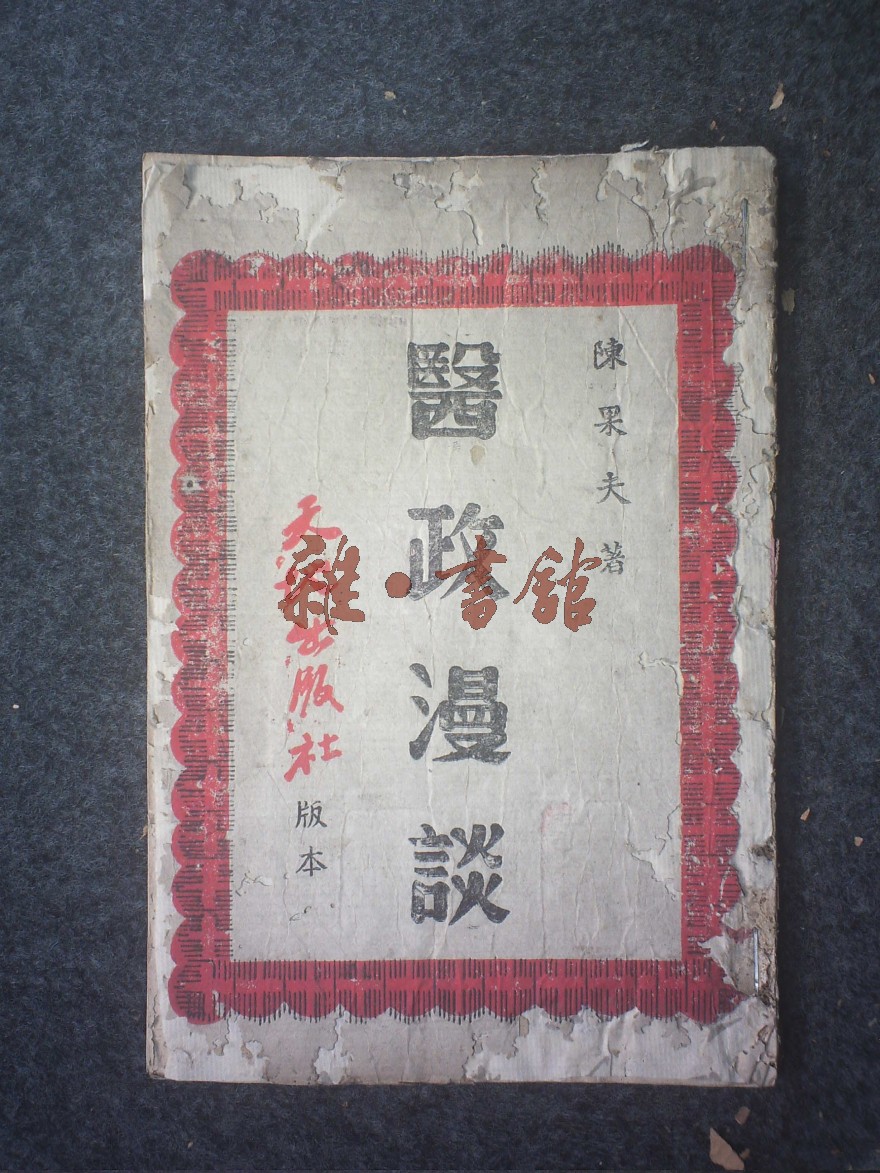 陳果夫著
醫政漫談
天地出版社
版本
雜·書館